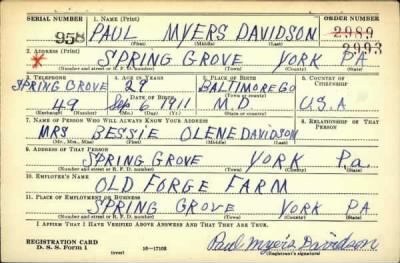 SERIAL NUMBER 1. NAME (Print) ORDER NUMBER
958 PAUL MYERS DAVIDSON 2989
(First) (Middle) (Last) 2993
2. ADDRESS (Print)
SPRING GROVE YORK PA
(Number and street or R. F. D. number) (Town) (County) (State)
3. TELEPHONE 4. AGE IN YEARS 5. PLACE OF BIRTH 6. COUNTRY OF CITIZENSHIP
SPRING GROVE 29 BALTIMORE CO
DATE OF BIRTH (Town or county)
49 Sep 6 1911 M.D U.S.A
(Exchange) (Number) (Mo.) (Day) (Yr.) (State or country)
7. NAME OF PERSON WHO WILL ALWAYS KNOW YOUR ADDRESS 8. RELATIONSHIP OF THAT PERSON
MRS BESSIE OLENE DAVIDSON
(Mr., Mrs., Miss) (First) (Middle) (Last)
9. ADDRESS OF THAT PERSON
SPRING GROVE YORK Pa.
(Number and street or R. F. D. number) (Town) (County) (State)
10. EMPLOYER'S NAME
OLD FORGE FARM
11. PLACE OF EMPLOYMENT OR BUSINESS
SPRING GROVE YORK PA
(Number and street or R. F. D. number) (Town) (County) (State)
I AFFIRM THAT I HAVE VERIFIED ABOVE ANSWERS AND THAT THEY ARE TRUE.
REGISTRATION CARD
D. S. S. Form 1 (over) 16-17105 Paul Myers Davidson
(Registrant's signature)